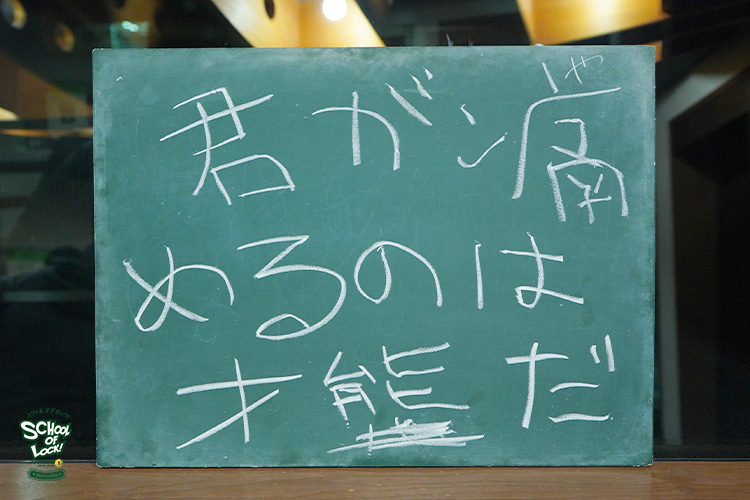 や
君が痛
めるのは
才能だ
SCHOOL
OF
LOCK!